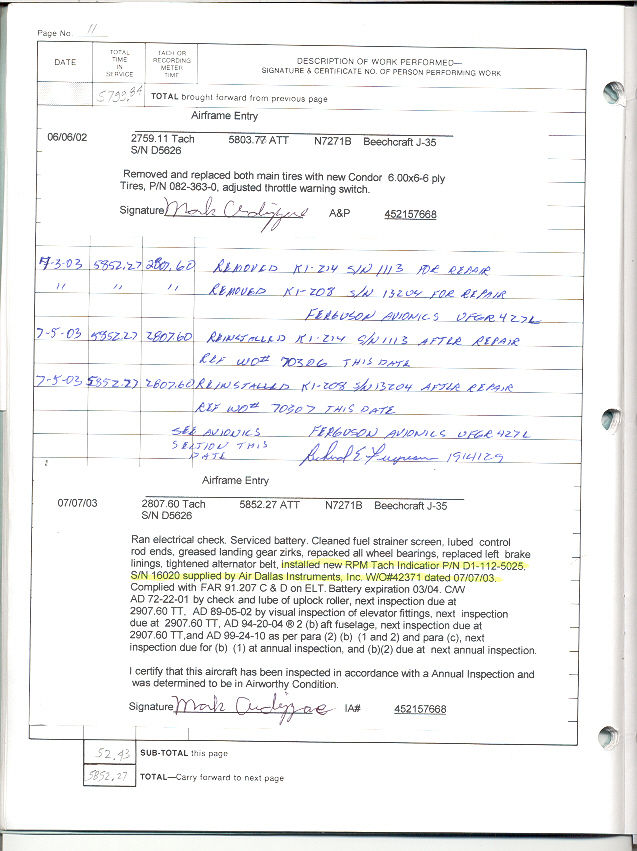 Page No. 11
DATE
TOTAL TIME IN SERVICE
TACH OR RECORDING METER TIME
DESCRIPTION OF WORK PERFORMED—
SIGNATURE & CERTIFICATE NO. OF PERSON PERFORMING WORK
TOTAL brought forward from previous page
Airframe Entry
06/06/02 2759.11 Tach 5803.77 ATT N7271B Beechcraft J-35
S/N D5626
Removed and replaced both main tires with new Condor 6.00x6-6 ply
Tires, P/N 082-363-0, adjusted throttle warning switch.
Signature A&P 452157668
7-3-03 5852.27 2807.60 REMOVED KI-214 S/N 1113 FOR REPAIR
" " " REMOVED KI-208 S/N 13204 FOR REPAIR
FERGUSON AVIONICS UFGR427L
7-5-03 5852.27 2807.60 REINSTALLED KI-214 S/N 1113 AFTER REPAIR
REF WO# 70306 THIS DATE
7-5-03 5852.27 2807.60 REINSTALLED KI-208 S/N 13204 AFTER REPAIR
REF WO# 70307 THIS DATE
SEE AVIONICS FERGUSON AVIONICS UFGR427L
SECTION THIS
DATE
Airframe Entry
07/07/03 2807.60 Tach 5852.27 ATT N7271B Beechcraft J-35
S/N D5626
Ran electrical check. Serviced battery. Cleaned fuel strainer screen, lubed control
rod ends, greased landing gear zirks, repacked all wheel bearings, replaced left brake
linings, tightened alternator belt, installed new RPM Tach Indicatior P/N D1-112-5025,
S/N 16020 supplied by Air Dallas Instruments, Inc. W/O#42371 dated 07/07/03.
Complied with FAR 91.207 C & D on ELT. Battery expiration 03/04. C/W
AD 72-22-01 by check and lube of uplock roller, next inspection due at
2907.60 TT, AD 89-05-02 by visual inspection of elevator fittings, next inspection
due at 2907.60 TT, AD 94-20-04 ® 2 (b) aft fuselage, next inspection due at
2907.60 TT,and AD 99-24-10 as per para (2) (b) (1 and 2) and para (c), next
inspection due for (b) (1) at annual inspection, and (b)(2) due at next annual inspection.
I certify that this aircraft has been inspected in accordance with a Annual Inspection and
was determined to be in Airworthy Condition.
Signature IA# 452157668
52.43 SUB-TOTAL this page
5852.27 TOTAL—Carry forward to next page